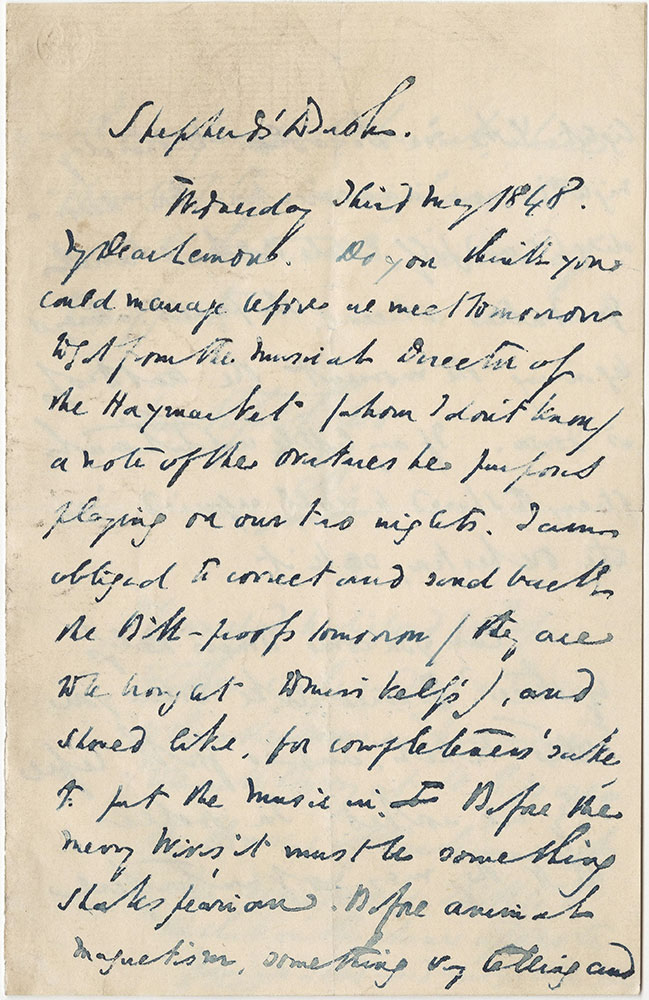 Shepherd's Bush.
Wednesday Third May 1848.
My Dear Lemon. Do you think you
could manage before we meet tomorrow
to get from the Musical Director of
the Haymarket (whom I don't know)
a note of the overtures he purposes
playing on our two nights. I am
obliged to correct and send back
the Bill-proofs tomorrow (they are
to be brought to Miss Kelly's), and
should like, for completeness' sake,
to put the Music in. Before the
Merry Wives it must be something
Shakspearian. Before Animal
Magnetism, something very telling and